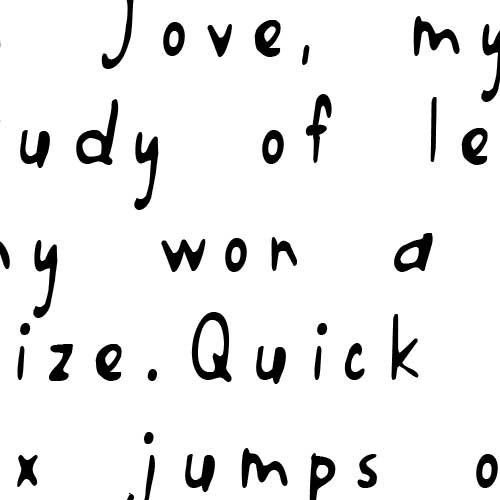 Jove, my
udy of le
ny won a
ize. Quick
x jumps o